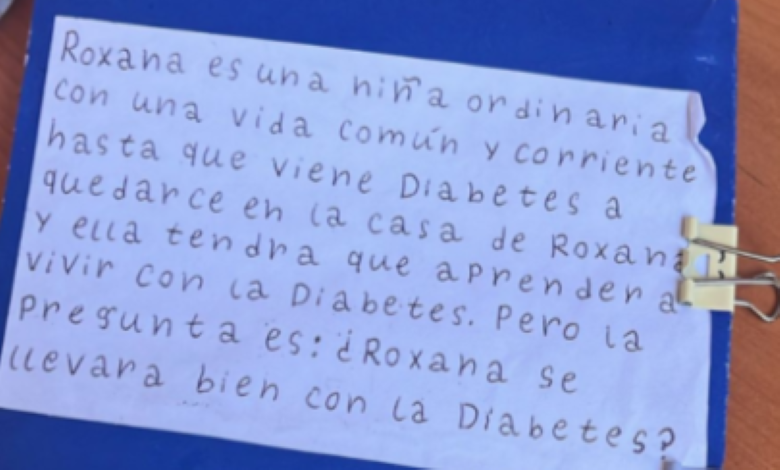 Roxana es una niña ordinaria
con una vida común y corriente
hasta que viene Diabetes a
quedarce en la casa de Roxana
y ella tendra que aprender a
vivir con la Diabetes. Pero la
pregunta es: ¿Roxana se
llevara bien con la Diabetes?